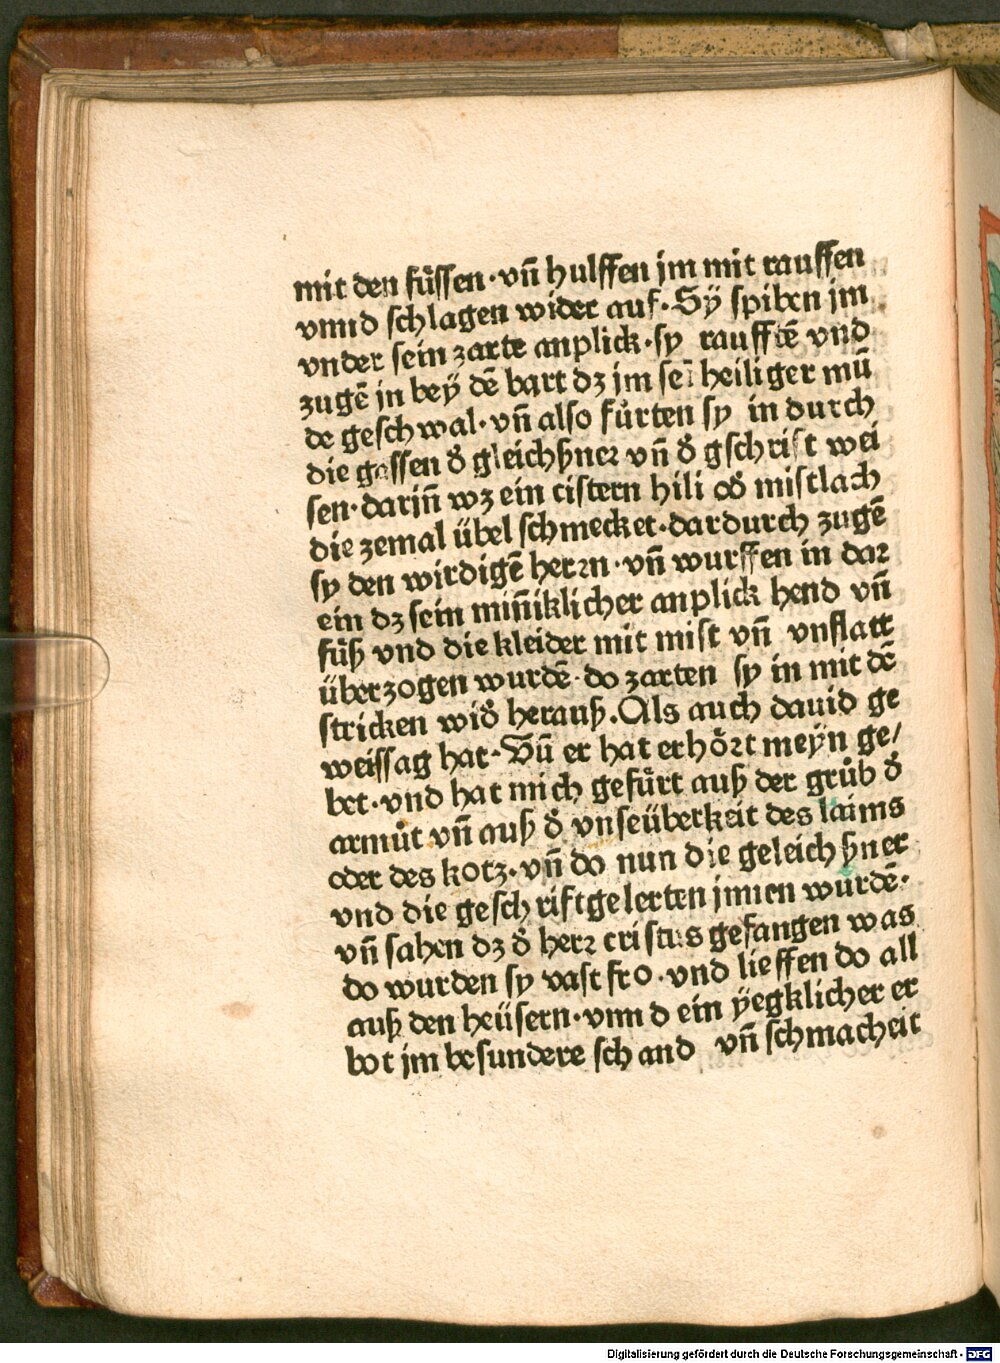 mit den fuͤssen·vn̄ hulffen jm mit rauffen
vnnd schlagen wider auf·Sÿ spiben jm
vnder sein zarte anplick·sy raufftē vnd
zugē in bey dē bart dz im sei heiliger mū
de geschwal·vn̄ also fuͤrten sy in durch
die gassen ď gleichßner vn̄ ď gschrift wei
sen·darjn̄ wz ein cistern hili oď mistlach
die zemal übel schmecket·dardurch zugē
sy den wirdigē herrn·vn̄ wurffen in dar
ein dz sein min̄iklicher anplick hend vn̄
fuͤß vnd die kleider mit mist vn̄ vnflatt
überzogen wurdē·do zarten sy in mit dē
stricken wiď herauß.Als auch dauid ge
weissag hat·Vn̄ er hat erhoͤrt meyn ge/
bet·vnd hat mich gefuͤrt auß der gruͦb ď
armuͦt vn̄ auß ď vnseüberkeit des laims
oder des kotz·vn̄ do nun die geleichßner
vnd die geschriftgelerten jnnen wurdē·
vn̄ sahen dz ď herr cristus gefangen was
do wurden sy vast fro·vnd lieffen do all
auß den heüsern·vnnd ein ÿegklicher er
bot jm besundere schand vn̄ schmacheit
Digitalisierung gefördert durch die Deutsche Forschungsgemeinschaft - DFG